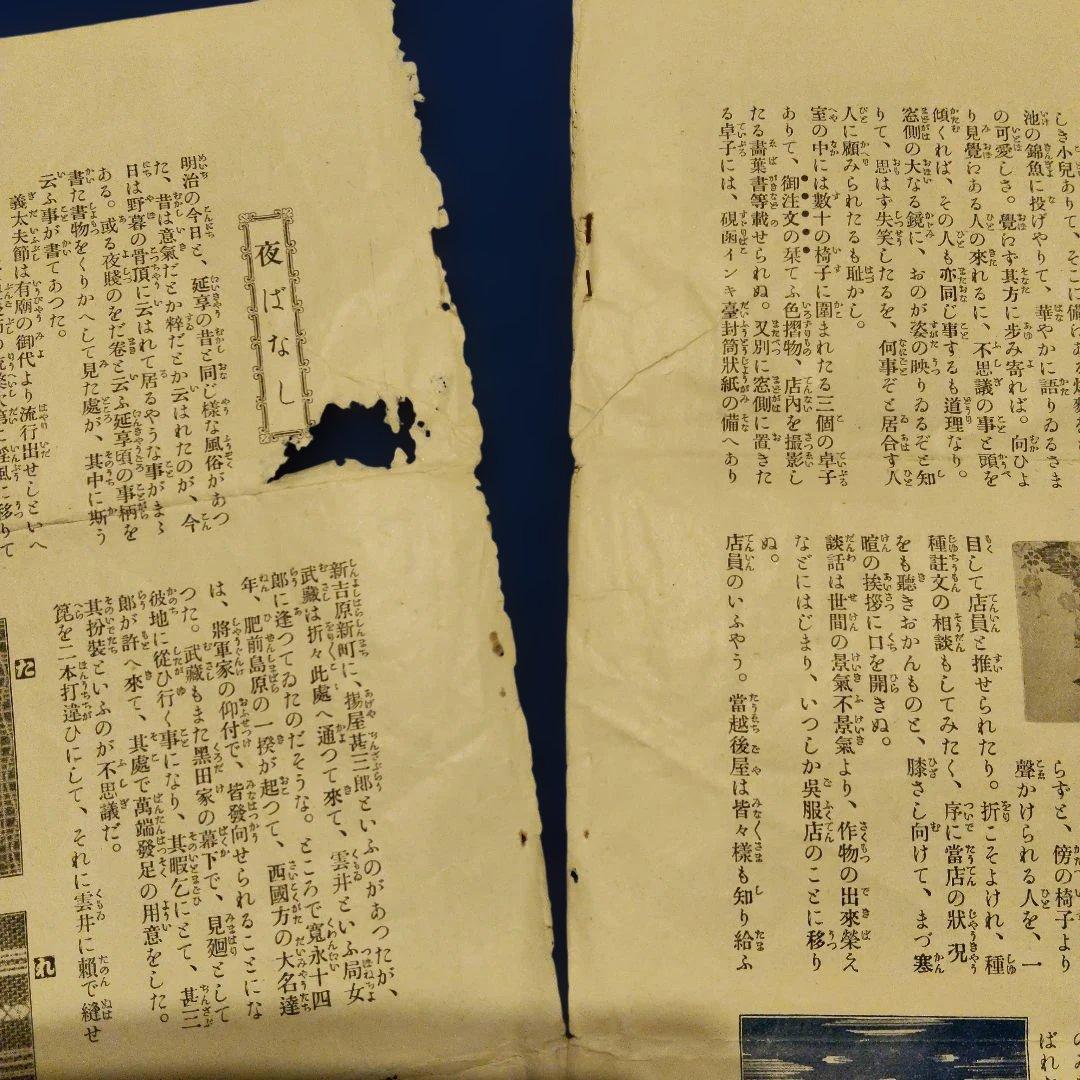 しき小兒ありて、そこに備へある
池の錦魚に投げやりて、華やかに語りゐるさま
の可愛しさ。覺わず其方に步み寄れば。向ひよ
り見覺わある人の來れるに、不思議の事と頭を
傾くれば、その人も亦同じ事するも道理なり。
窓側の大なる鏡に、おのが姿の映りゐるぞと知
りて、思はず失笑したるを、何事ぞと居合す人
人に顧みられたるも恥かし。
室の中には數十の椅子に圍まれたる三個の卓子
ありて、御注文の栞てふ色摺物、店內を撮影し
たる畵葉書等載せられぬ。又別に窓側に置きた
る卓子には、硯函インキ臺封筒狀紙の備へあり
らずと、傍の椅子より
聲かけられる人を、一
目して店員と推せられたり。折こそよけれ、種
種註文の相談もしてみたく、序に當店の狀況
をも聽きおかんものと、膝さし向けて、まづ寒
暄の挨拶に口を開きぬ。
談話は世間の景氣不景氣より、作物の出來榮え
などにはじまり、いつしか吳服店のことに移り
ぬ。
店員のいふやう。當越後屋は皆々樣も知り給ふ
ばれ
夜ばなし
明治の今日と、延享の昔と同じ樣な風俗があつ
た、昔は意氣だとか粹だとか云はれたのが、今
日は野暮の骨頂に云はれて居るやうな事がまゝ
ある。或る夜賤のをだ卷と云ふ延享頃の事柄を
書た書物をくりかへして見た處が、其中に斯う
云ふ事が書てあつた。
義太夫節は有廟の御代より流行出せしといへ
淫風に移りて
新吉原新町に、揚屋甚三郎といふのがあつたが、
武藏は折々此處へ通つて來て、雲井といふ局女
郎に逢つてゐたのだそうな。ところで寬永十四
年、肥前島原の一揆が起つて、西國方の大名達
は、將軍家の仰付で、皆發向せられることにな
つた。武藏もまた黑田家の幕下で、見廻として
彼地に從ひ行く事になり、其暇乞にとて、甚三
郎が許へ來て、其處で萬端發足の用意をした。
其扮裝といふのが不思議だ。
箆を二本打違ひにして、それに雲井に賴で縫せ
た
れ